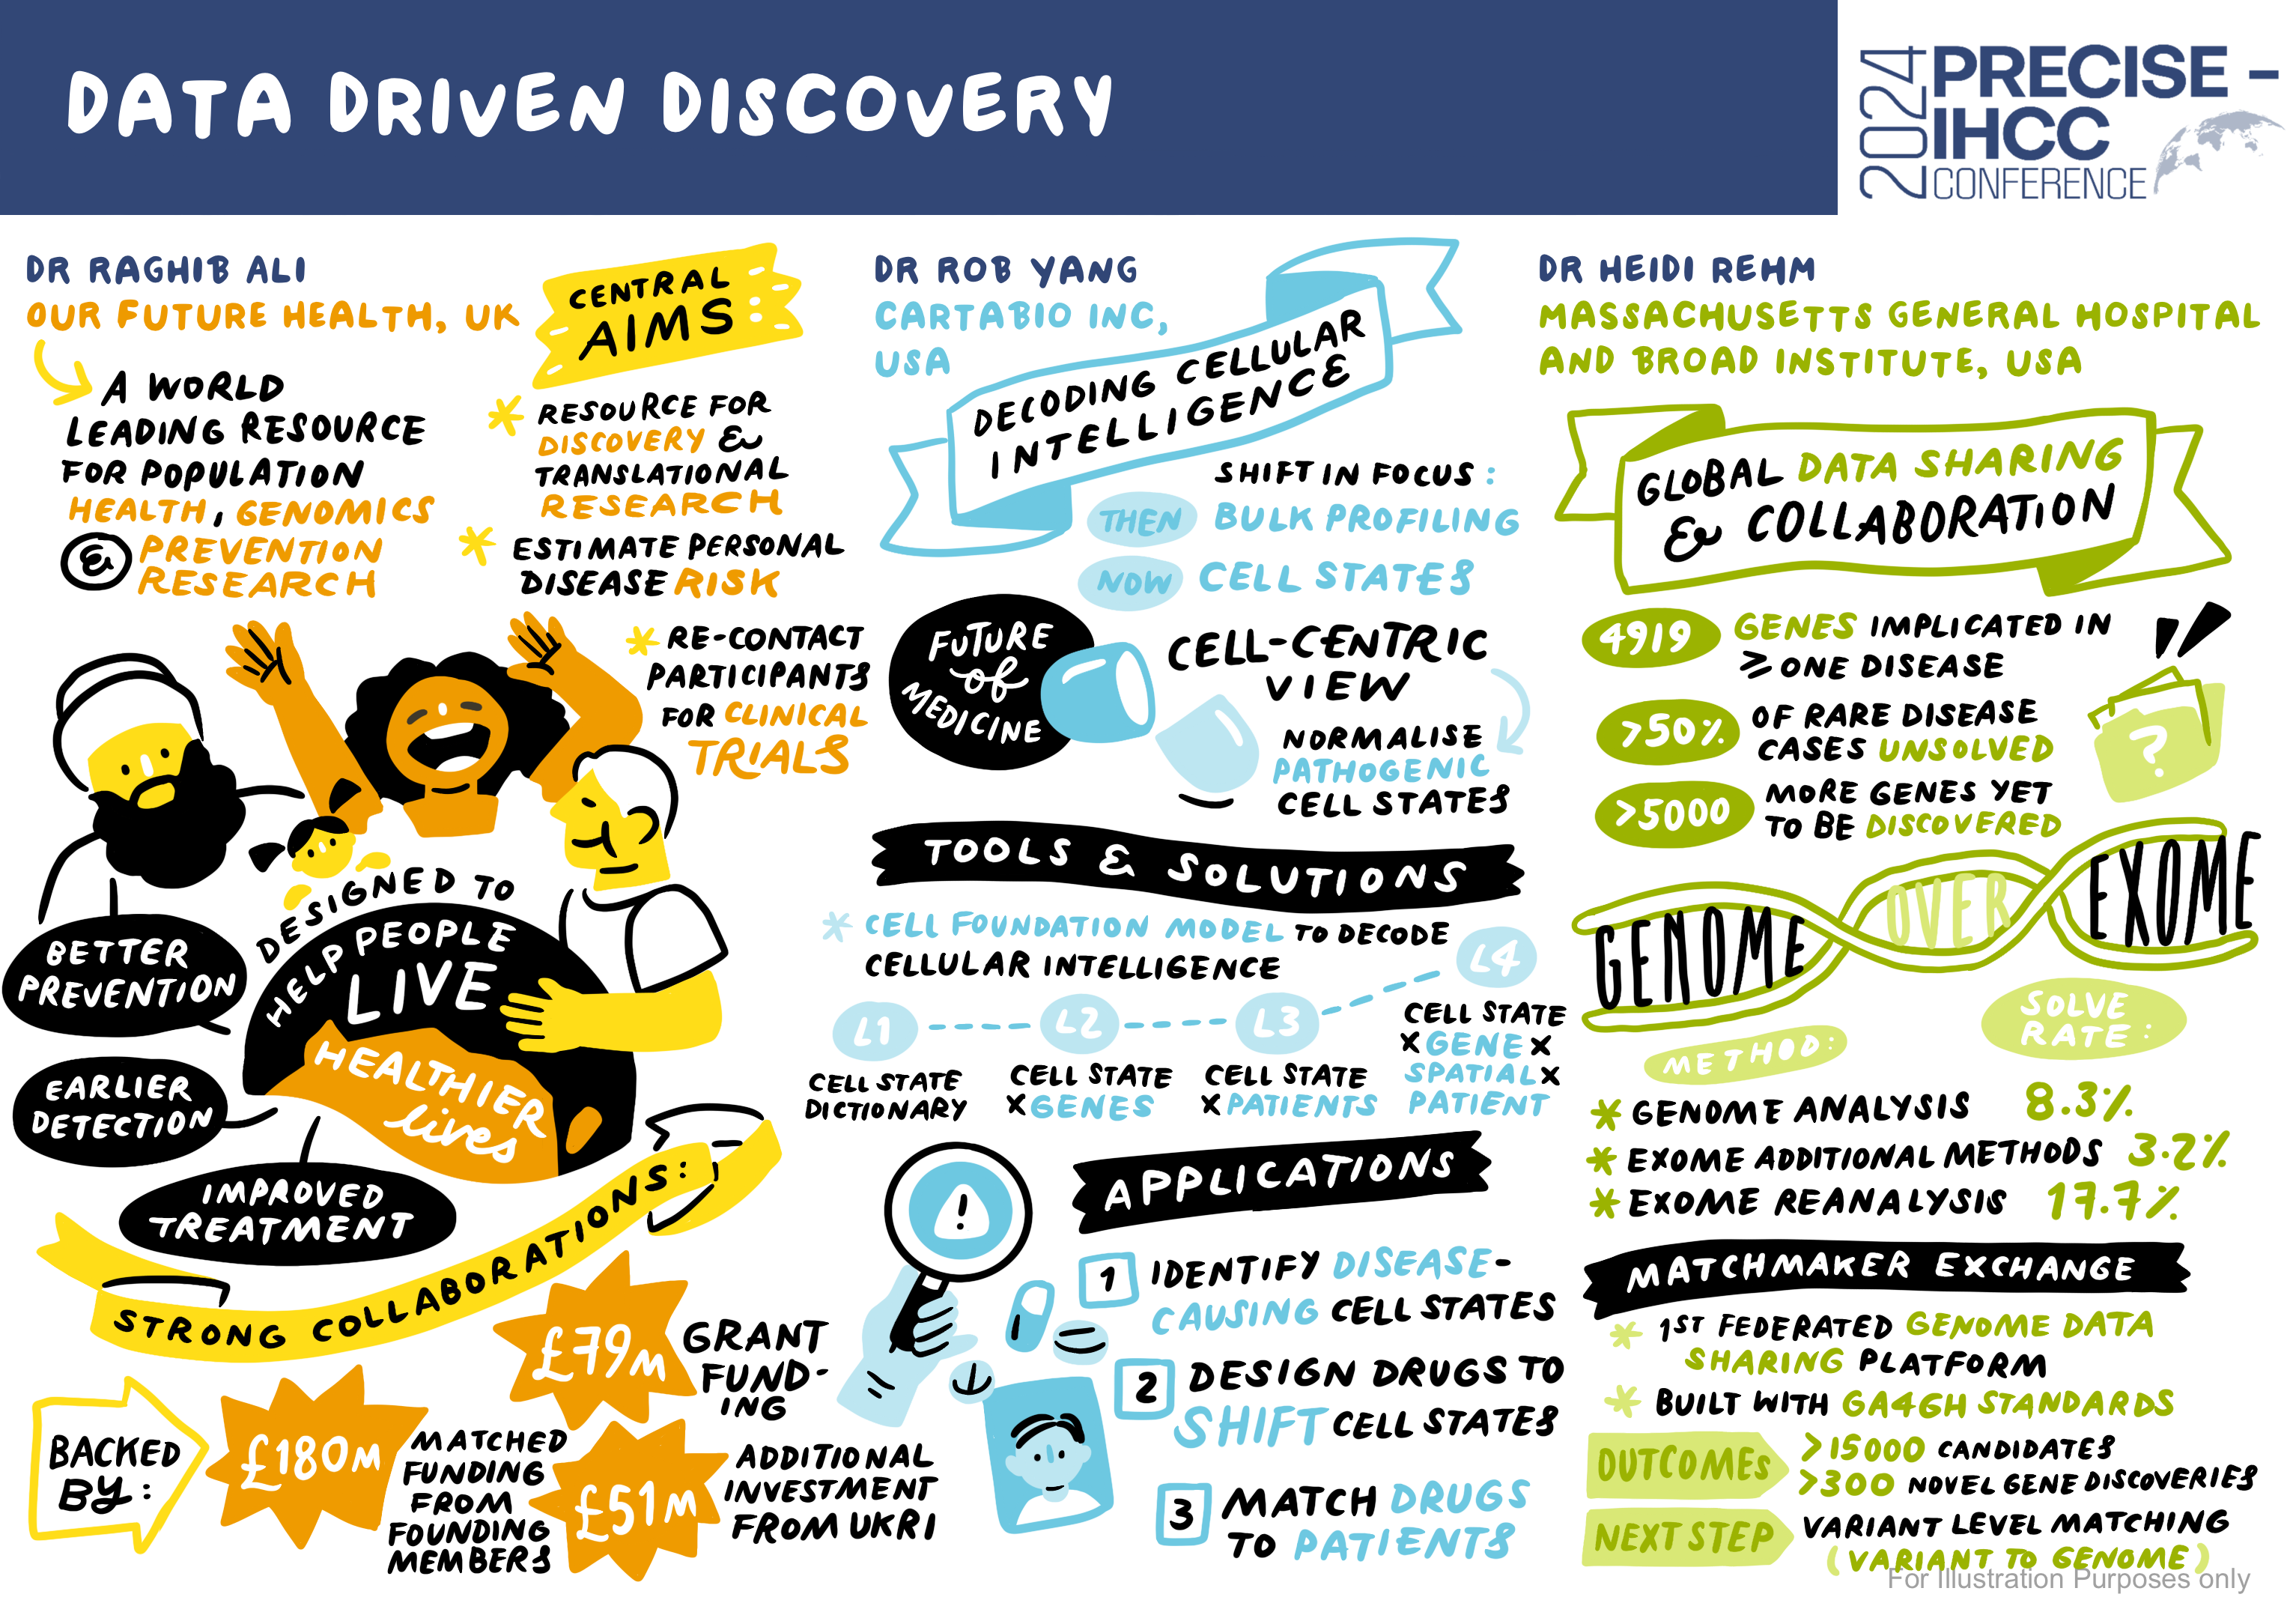 DATA DRIVEN DISCOVERY
2024
PRECISE –
IHCC
CONFERENCE
DR RAGHIB ALI
OUR FUTURE HEALTH, UK
A WORLD
LEADING RESOURCE
FOR POPULATION
HEALTH, GENOMICS
& PREVENTION
RESEARCH
CENTRAL
AIMS
* RESOURCE FOR
DISCOVERY &
TRANSLATIONAL
RESEARCH
* ESTIMATE PERSONAL
DISEASE RISK
* RE-CONTACT
PARTICIPANTS
FOR CLINICAL
TRIALS
DESIGNED TO
HELP PEOPLE
LIVE
HEALTHIER
lives
BETTER
PREVENTION
EARLIER
DETECTION
IMPROVED
TREATMENT
STRONG COLLABORATIONS:
BACKED
BY:
£180M
MATCHED
FUNDING
FROM
FOUNDING
MEMBERS
£79M
GRANT
FUND-
ING
£51M
ADDITIONAL
INVESTMENT
FROM UKRI
DR ROB YANG
CARTABIO INC,
USA
DECODING CELLULAR
INTELLIGENCE
SHIFT IN FOCUS:
THEN BULK PROFILING
NOW CELL STATES
FUTURE
of
MEDICINE
CELL-CENTRIC
VIEW
NORMALISE
PATHOGENIC
CELL STATES
TOOLS & SOLUTIONS
* CELL FOUNDATION MODEL TO DECODE
CELLULAR INTELLIGENCE
L1
CELL STATE
DICTIONARY
L2
CELL STATE
X GENES
L3
CELL STATE
X PATIENTS
L4
CELL STATE
X GENE X
SPATIAL X
PATIENT
APPLICATIONS
!
1 IDENTIFY DISEASE-
CAUSING CELL STATES
2 DESIGN DRUGS TO
SHIFT CELL STATES
3 MATCH DRUGS
TO PATIENTS
DR HEIDI REHM
MASSACHUSETTS GENERAL HOSPITAL
AND BROAD INSTITUTE, USA
GLOBAL DATA SHARING
& COLLABORATION
4919 GENES IMPLICATED IN
≥ ONE DISEASE
>50% OF RARE DISEASE
CASES UNSOLVED
>5000 MORE GENES YET
TO BE DISCOVERED
?
GENOME OVER EXOME
METHOD:
SOLVE
RATE:
* GENOME ANALYSIS 8.3%
* EXOME ADDITIONAL METHODS 3.2%
* EXOME REANALYSIS 17.7%
MATCHMAKER EXCHANGE
* 1ST FEDERATED GENOME DATA
SHARING PLATFORM
* BUILT WITH GA4GH STANDARDS
OUTCOMES
>15000 CANDIDATES
>300 NOVEL GENE DISCOVERIES
NEXT STEP
VARIANT LEVEL MATCHING
(VARIANT TO GENOME)
For Illustration Purposes only